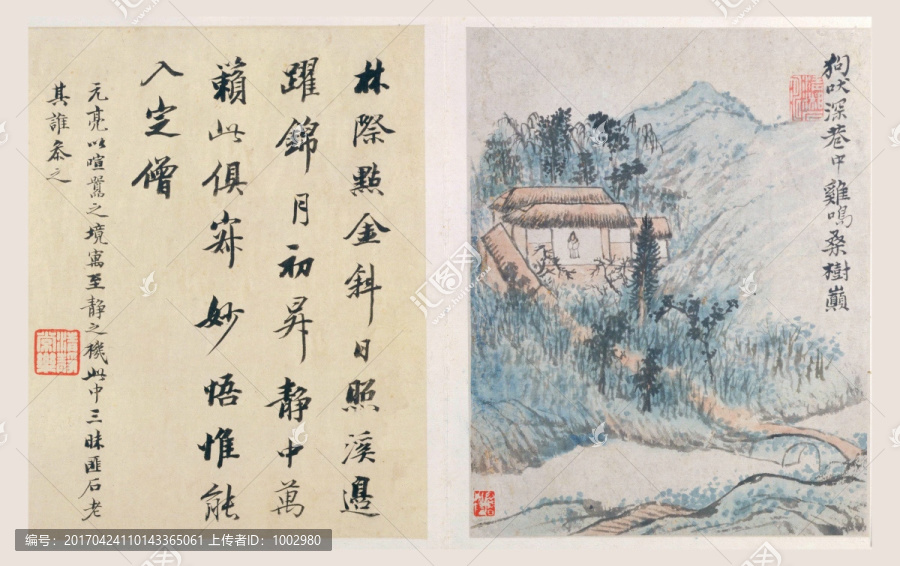 狗吠深巷中雞鳴桑樹巔
林際點金斜日照溪邊
躍錦月初昇靜中萬
籟此俱寂妙悟惟能
入定僧
元亮以喧囂之境寓至靜之機此中三昧匪石老
其誰參之
编号：20170424110143365061 上传者ID：1002980